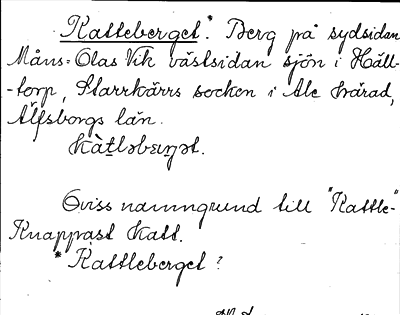 Katteberget.* Berg på sydsidan
Måns-Olas Vik västsidan sjön i Håll-
-torp, Starrkärrs socken i Ale härad,
Älfsborgs län.
kàtləbærjət.
Oviss namngrund till "Kattle-"
Knappast Katt.
*Kattleberget?